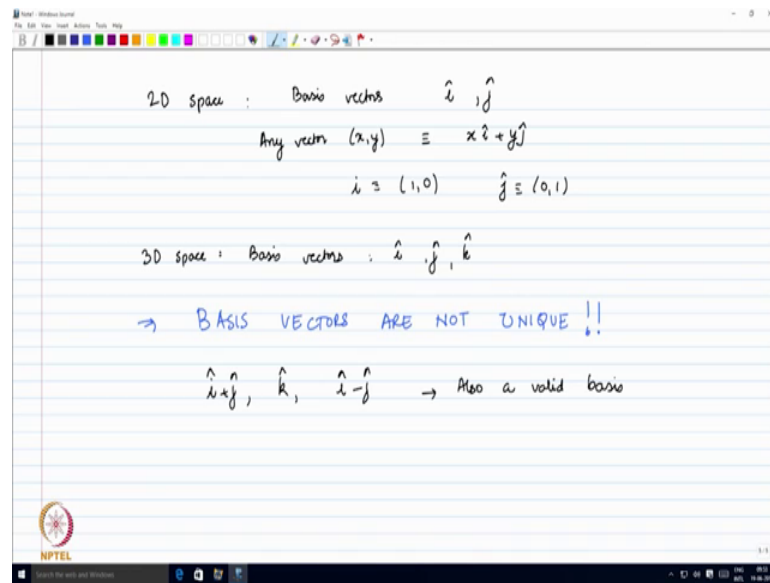 Note1 - Windows Journal
File Edit View Insert Actions Tools Help
2D space : Basis vectors î , ĵ
Any vector (x,y) ≡ x î + y ĵ
i ≡ (1,0) ĵ ≡ (0,1)
3D space : Basis vectors : î , ĵ , k̂
→ BASIS VECTORS ARE NOT UNIQUE !!
î + ĵ , k̂ , î - ĵ → Also a valid basis
NPTEL
Search the web and Windows
ENG